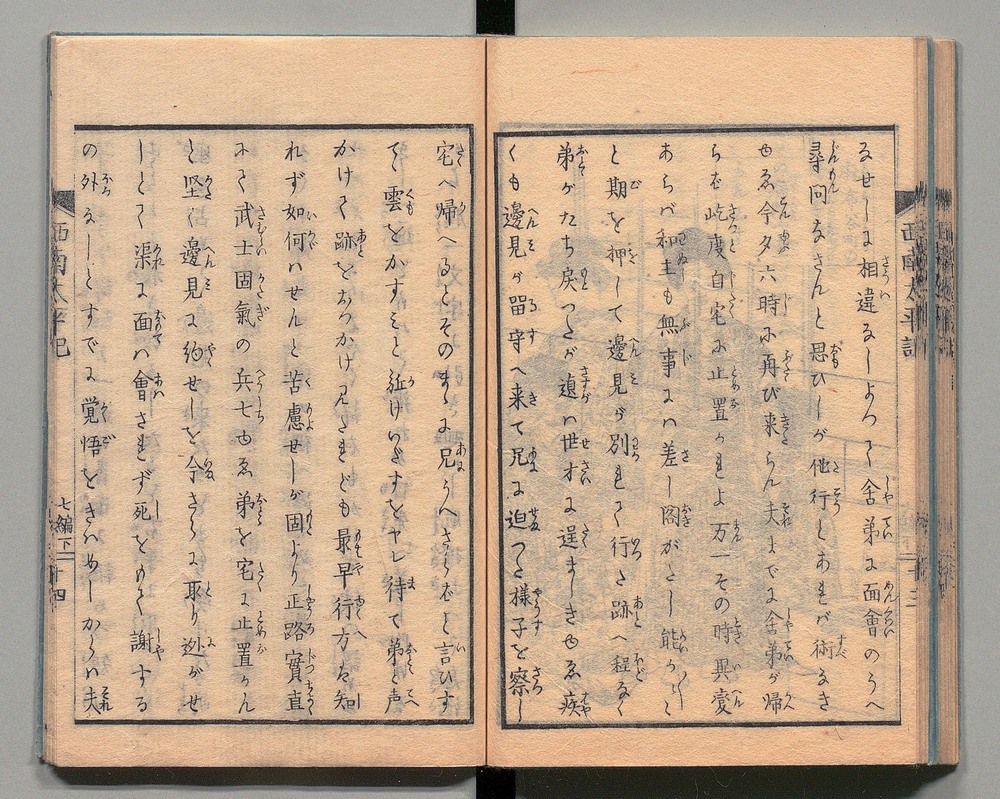 なせしに相違なしよつて舎弟に面會のうへ
尋問なさんと思ひしが他行とあれバ術なき
ゆゑ今夕六時に再び来らん夫までに舎弟が帰
らば屹度自宅に止置かれよ万一その時異変
あらバ和主も無事にハ差し置がたし能か〳〵
と期を押して邊見が別れて行た跡へ程なく
弟がたち戻つたが遉ハ世才に逞ましきゆゑ疾
くも邊見が畄守へ来て兄に迫つた様子を察し
宅へ帰へるとそのまゝに兄うへさらばと言ひす
てゝ雲をかすみと迯けいだすをヤレ待て弟と声
かけて跡をおつかけ見たれども最早行方ハ知
れず如何ハせんと苦慮せしが固より正路實直
にて武士固氣の兵七ゆゑ弟を宅に止置かん
と堅く邊見に約せしを今さらに取り迯がせ
しとて渠に面ハ會されず死をもて謝する
の外なしとすでに覚悟をきはめしからハ夫
西南太平記
七編下
十四
西南太平記